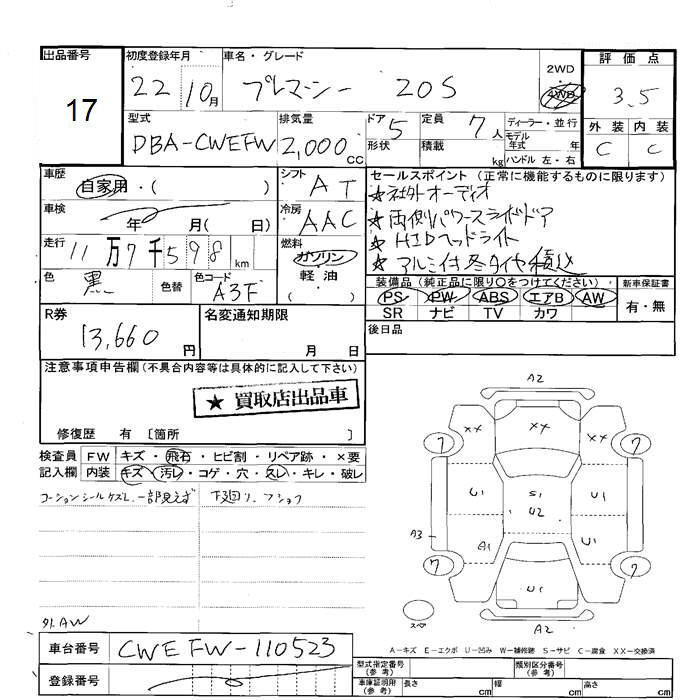 出品番号
17
初度登録年月
22 10月
車名・グレード
プレマシー 20S
2WD
4WD
評価点
3.5
外装 内装
C C
型式
DBA-CWEFW
排気量
2,000CC
ドア 5
形状
定員 7人
積載 kg
ディーラー・並行
モデル年式 年
ハンドル 左・右
車歴
自家用・( )
車検
年 月( 日)
走行
11万7千598km
色 黒
色替
色コード A3F
シフト AT
冷房 AAC
燃料
ガソリン
軽油
( ・ )
セールスポイント (正常に機能するものに限ります)
★社外オーディオ
★両側パワースライドドア
★HIDヘッドライト
★アルミ付冬タイヤ積込
装備品 (純正品に限り○をつけてください)
PS PW ABS エアB AW
SR ナビ TV カワ
新車保証書
有・無
R券
13,660円
名変通知期限
月 日
後日品
注意事項申告欄 (不具合内容等は具体的に記入して下さい)
★ 買取店出品車
修復歴 有 〔箇所 〕
検査員記入欄
FW キズ・飛石・ヒビ割・リペア跡・×要
内装 キズ・汚レ・コゲ・穴・スレ・キレ・破レ
コーションシールケズレ、一部見えず
下廻り、フショク
外AW
車台番号
CWEFW-110523
登録番号
A2
XX XX XX
7 7
U1 S1 U1
U2
A3 A1 U1
7 7
U1
スペア
A2
A-キズ E-エクボ U-凹み W-補修跡 S-サビ C-腐食 XX-交換済
型式指定番号(参考)
類別区分番号(参考)
車庫証明用(参考)
長さ cm 幅 cm 高さ cm